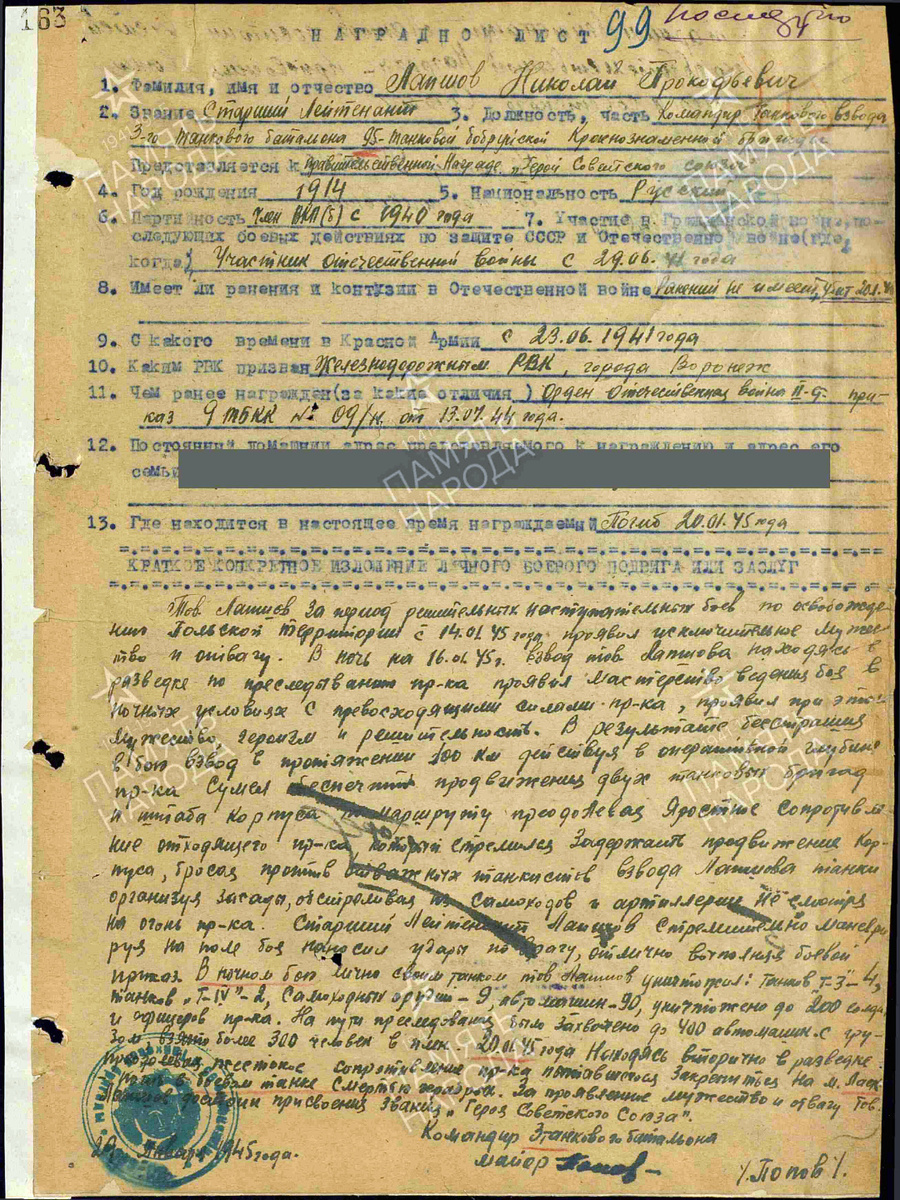 163
НАГРАДНОЙ ЛИСТ 99 посмертно
1. Фамилия, имя и отчество Лапшов Николай Прокофьевич
2. Звание Старший Лейтенант 3. Должность, часть Командир Танкового взвода
3-го танкового баталиона 95-танковой бобруйской Краснознаменной бригады
Представляется к правительственной Награде „Герой Советского союза"
4. Год рождения 1914 5. Национальность Русский
6. Партийность Член ВКП(б) с 1940 года 7. Участие в Гражданской войне, по-
следующих боевых действиях по защите СССР и Отечественной войне (где,
когда) Участник отечественной войны с 29.06.41 года
8. Имеет ли ранения и контузии в Отечественной войне Ранений не имеет,
9. С какого времени в Красной Армии с 23.06.1941 года
10. Каким РВК призван Железнодорожным РВК, города Воронеж
11. Чем ранее награжден (за какие отличия) Орден отечественная война II-ст. при-
каз 9 ТБКК № 09/н от 13.07.44 года.
12. Постоянный домашний адрес представляемого к награждению и адрес его
семьи
13. Где находится в настоящее время награждаемый Погиб 20.01.45 года
КРАТКОЕ КОНКРЕТНОЕ ИЗЛОЖЕНИЕ ЛИЧНОГО БОЕВОГО ПОДВИГА ИЛИ ЗАСЛУГ
Тов. Лапшов за период решительных наступательных боев по освобожде-
нию Польской территории с 14.01.45 года проявил исключительное муже-
ство и отвагу. В ночь на 16.01.45г. взвод тов. Лапшова находясь в
разведке по преследыванию пр-ка проявил мастерство ведения боя в
ночных условиях с превосходящими силами пр-ка, проявил при этом
мужество, героизм и решительность. В результате бесстрашия
в бою взвод в протяжении 100 км действуя в оперативной глубине
пр-ка сумел беспечить продвижения двух танковых бригад
и штаба корпуса по маршруту преодолевая яростное сопротивле-
ние отходящего пр-ка, который стремился задержать продвижение кор-
пуса, бросая против отважных танкистов взвода Лапшова танки
организуя засады, обстреливая из самоходов и артиллерии не смотря
на огонь пр-ка. Старший Лейтенант Лапшов стремительно маневри
руя на поле боя наносил удары по врагу, отлично выполняя боевой
приказ. В ночном бою лично своим танком тов Лапшов уничтожил: танков Т-3"-4,
танков „Т-IV"-2, самоходных орудий-9, автомашин-90, уничтожено до 200 солдат
и офицеров пр-ка. На пути преследования было захвачено до 400 автомашин с гру-
зом взято более 300 человек в плен. 20.01.45 года находясь вторично в разведке
преодолевая жестокое сопротивление пр-ка пытавшегося закрепиться на м.
погиб в боевом танке смертью храбрых. За проявление мужество и отвагу тов.
Лапшов достоин присвоения звания „Героя Советского Союза".
Командир 3 танкового батальона
января 1945 года. майор /Попов/.